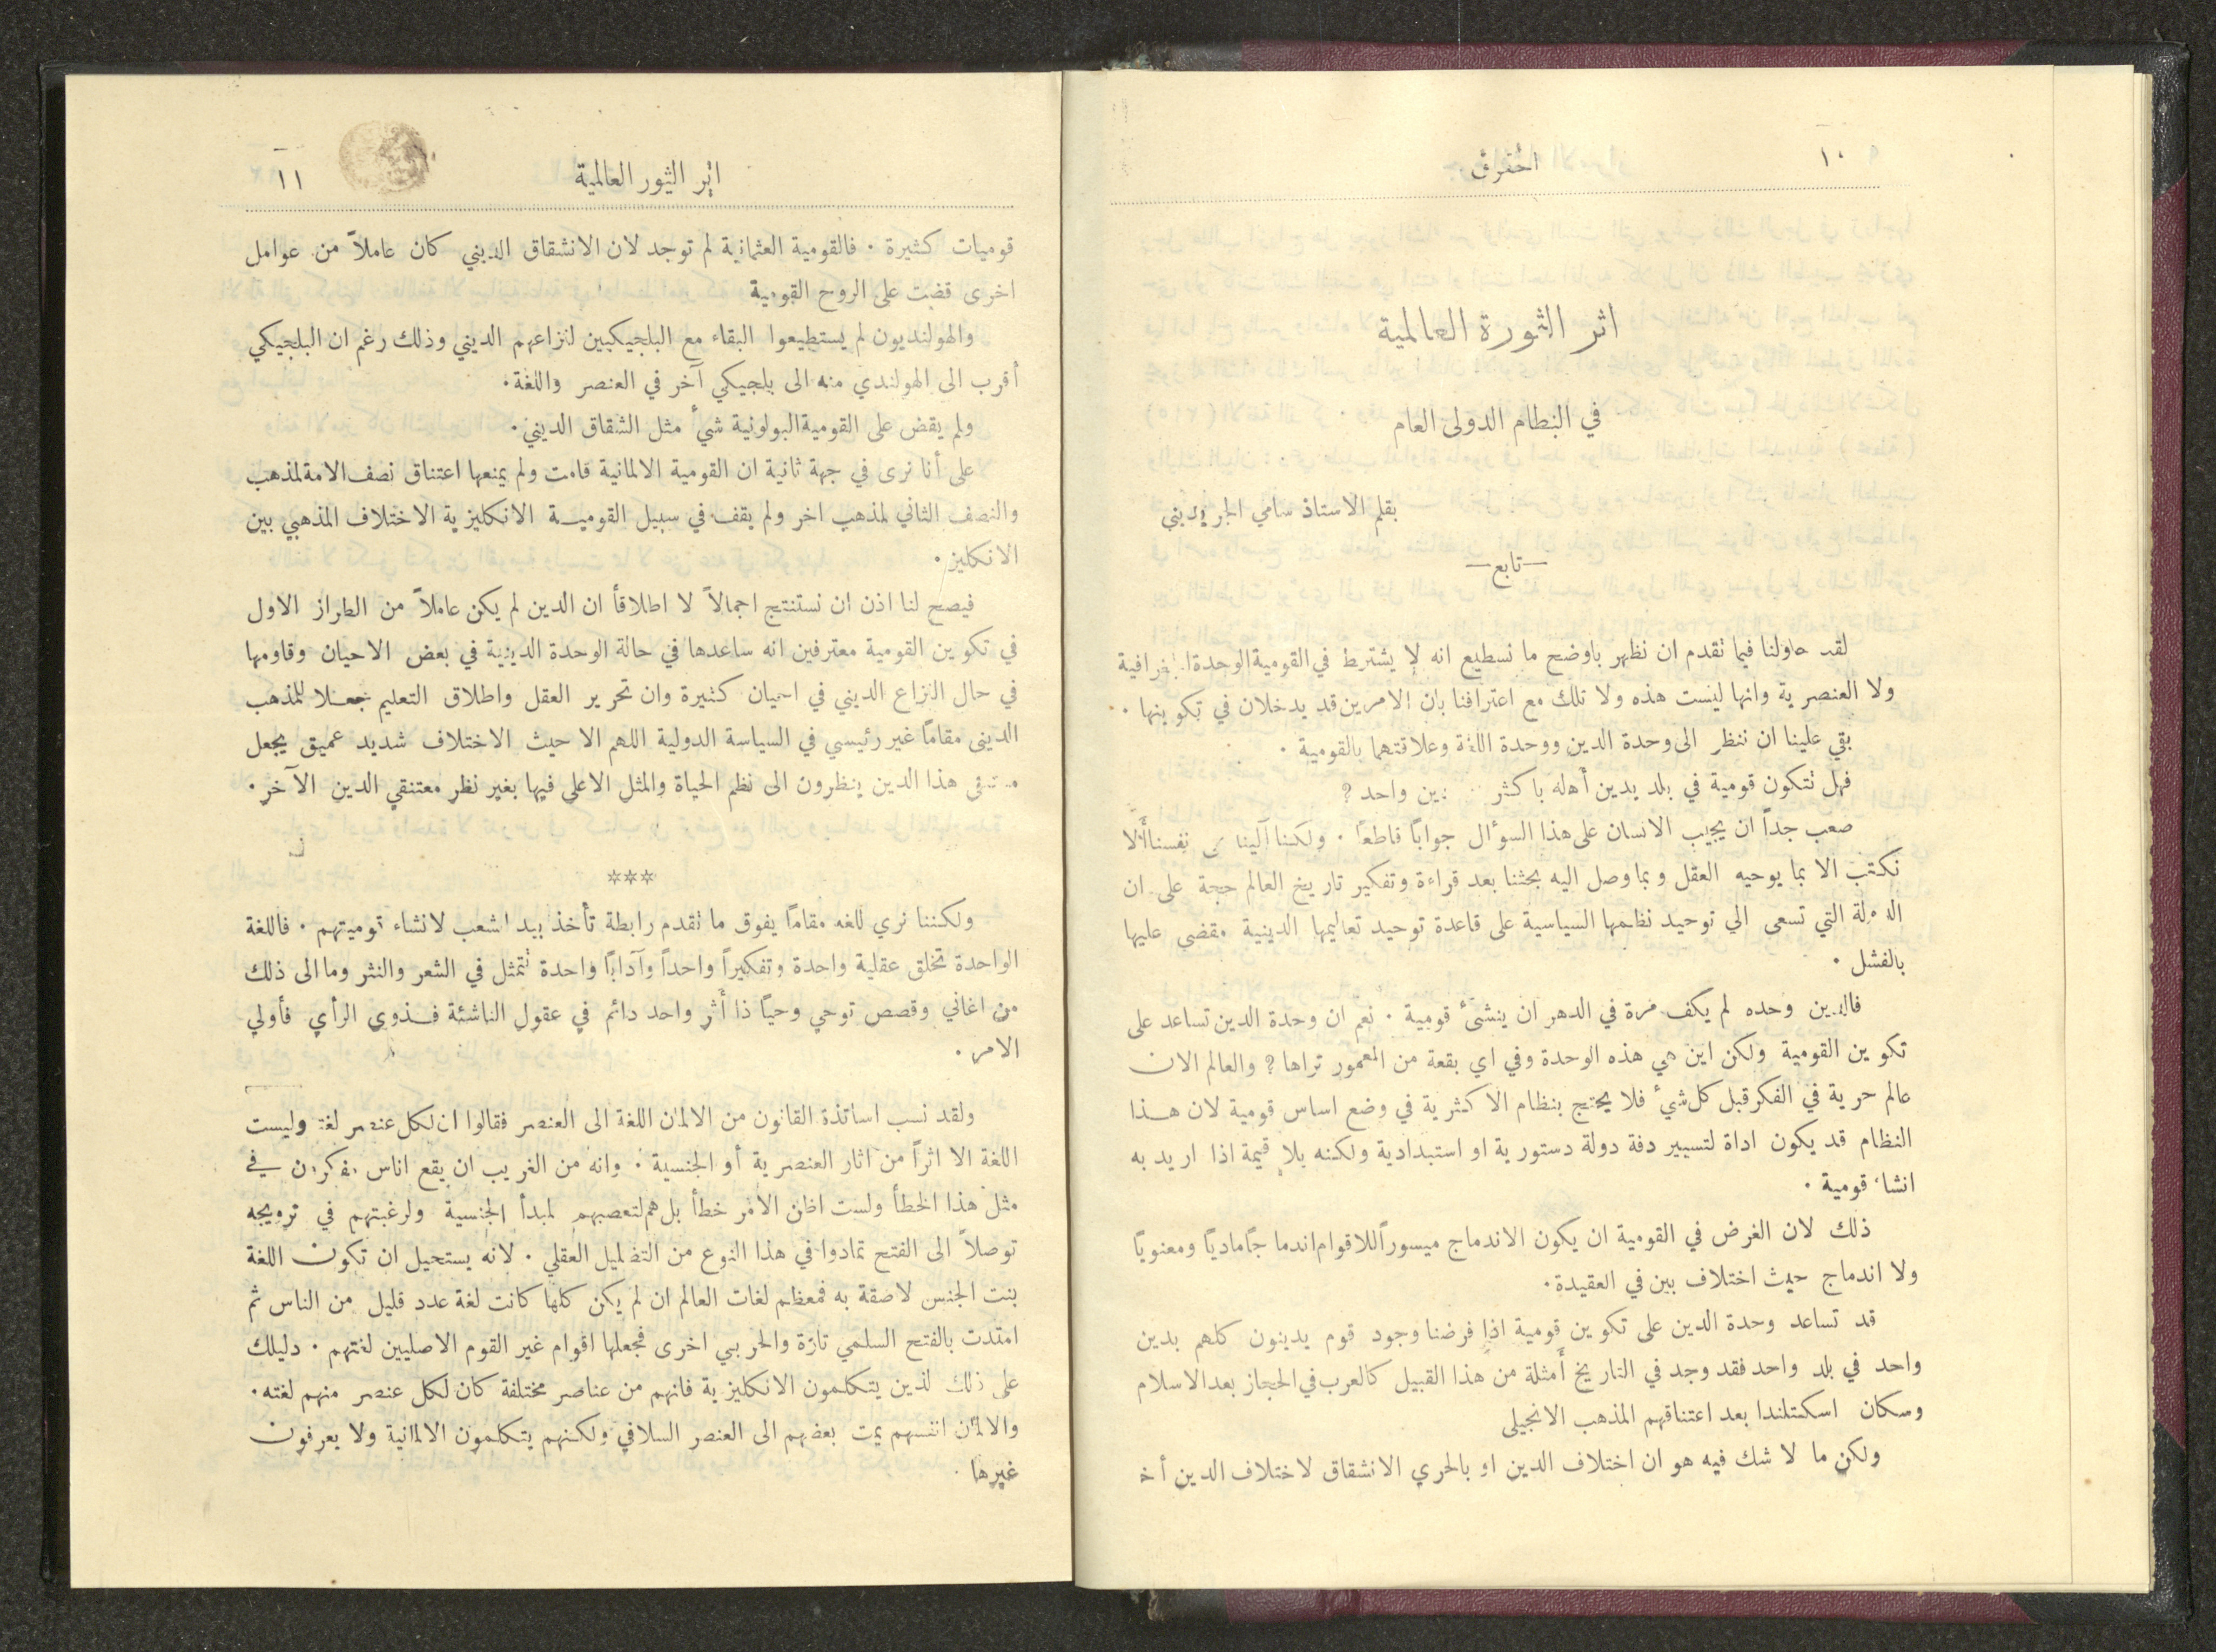 ١٠
الحقوق
اثر الثورة العالمية
في النظام الدولى العام
بقلم الاستاذ سامي الجريديني
— تابع —
لقد حاولنا فيما تقدم ان نظهر باوضح ما نسطيع انه لا يشترط في القومية الوحدة الجغرافية
ولا العنصرية وانها ليست هذه ولا تلك مع اعترافنا بان الامرين قد يدخلان في تكوينها .
بقي علينا ان ننظر الى وحدة الدين ووحدة اللغة وعلاقتهما بالقومية .
فهل تتكون قومية في بلد يدين أهله باكثر دين واحد ?
صعب جداً ان يجيب الانسان على هذا السؤال جواباً قاطعاً . ولكننا آلينا نفسنا ألّا
نكتب الا بما يوحيه العقل وبما وصل اليه بحثنا بعد قراءة وتفكير تاريخ العالم حجة على ان
الدولة التي تسعى الي توحيد نظمها السياسية على قاعدة توحيد تعاليمها الدينية مقضى عليها
بالفشل .
فالدين وحده لم يكف مرة في الدهر ان ينشئ قومية . نعم ان وحدة الدين تساعد على
تكوين القومية ولكن اين هي هذه الوحدة وفي اي بقعة من المعمور تراها ? والعالم الان
عالم حرية في الفكر قبل كل شيء فلا يحتج بنظام الاكثرية في وضع اساس قومية لان هذا
النظام قد يكون اداة لتسيير دفة دولة دستورية او استبدادية ولكنه بلا قيمة اذا اريد به
انشاء قومية .
ذلك لان الغرض في القومية ان يكون الاندماج ميسوراً للاقوام اندماجاً مادياً ومعنوياً
ولا اندماج حيث اختلاف بين في العقيدة .
قد تساعد وحدة الدين على تكوين قومية اذا فرضنا وجود قوم يدينون كلهم بدين
واحد في بلد واحد فقد وجد في التاريخ أمثلة من هذا القبيل كالعرب في الحجاز بعد الاسلام
وسكان اسكتلندا بعد اعتناقهم المذهب الانجيلى
ولكن ما لا شك فيه هو ان اختلاف الدين او بالحري الانشقاق لاختلاف الدين أخ
اثر الثور العالمية
١١
قوميات كثيرة . فالقومية العثمانية لم توجد لان الانشقاق الديني كان عاملاً من عوامل
اخرى قضت على الروح القومية
والهولنديون لم يستطيعوا البقاء مع البلجيكيين لنزاعهم الديني وذلك رغم ان البلجيكي
أقرب الى الهولندي منه الى بلجيكي آخر في العنصر واللغة .
ولم يقض على القومية البولونية شيء مثل الشقاق الديني .
على أنا نرى في جهة ثانية ان القومية الالمانية قامت ولم يمنعها اعتناق نصف الامة لمذهب
والنصف الثاني لمذهب اخر ولم يقف في سبيل القومية الانكليزية الاختلاف المذهبي بين
الانكليز .
فيصح لنا اذن ان نستنتج اجمالاً لا اطلاقاً ان الدين لم يكن عاملاً من الطراز الاول
في تكوين القومية معترفين انه ساعدها في حالة الوحدة الدينية في بعض الاحيان وقاومها
في حال النزاع الديني في احيان كثيرة وان تحرير العقل واطلاق التعليم جعلا للمذهب
الدينى مقاماً غير رئيسي في السياسة الدولية اللهم الا حيث الاختلاف شديد عميق يجعل
معتنقى هذا الدين ينظرون الى نظم الحياة والمثل الاعلى فيها بغير نظر معتنقي الدين الآخر .
***
ولكننا نري للغه مقاماً يفوق ما تقدم رابطة تأخذ بيد الشعب لانشاء قوميتهم . فاللغة
الواحدة تخلق عقلية واحدة وتفكيراً واحداً وآداباً واحدة تتمثل في الشعر والنثر وما الى ذلك
من اغاني وقصص توحي وحياً ذا أثر واحد دائم في عقول الناشئة فذوي الرأي فأولي
الامر .
ولقد نسب اساتذة القانون من الالمان اللغة الى العنصر فقالوا ان لكل عنصر لغة وليست
اللغة الا اثراً من اثار العنصرية أو الجنسية . وانه من الغريب ان يقع اناس مفكرون في
مثل هذا الخطأ ولست اظن الأمر خطأ بل هم لتعصبهم لمبدأ الجنسية ولرغبتهم في ترويجه
توصلاً الى الفتح تمادوا في هذا النوع من التضليل العقلي . لانه يستحيل ان تكون اللغة
بنت الجنس لاصقة به فمعظم لغات العالم ان لم يكن كلها كانت لغة عدد قليل من الناس ثم
امتدت بالفتح السلمي تارة والحربي اخرى فجعلها اقوام غير القوم الاصليين لغتهم . دليلك
على ذلك لذين يتكلمون الانكليزية فانهم من عناصر مختلفة كان لكل عنصر منهم لغته .
والالمان انفسهم يمت بعضهم الى العنصر السلافي ولكنهم يتكلمون الالمانية ولا يعرفون
غيرها .